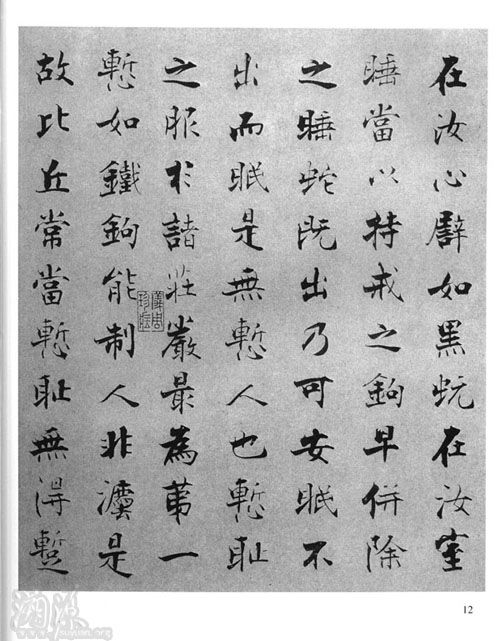 在汝心譬如黑蚖在汝室
睡當以持戒之鉤早併除
之睡蛇既出乃可安眠不
出而眠是無慙人也慙耻
之服於諸莊嚴最為第一
慙如鐵鉤能制人非灋是
故比丘常當慙耻無得暫
儀周珍藏
12
溯源
www.suyuan.org